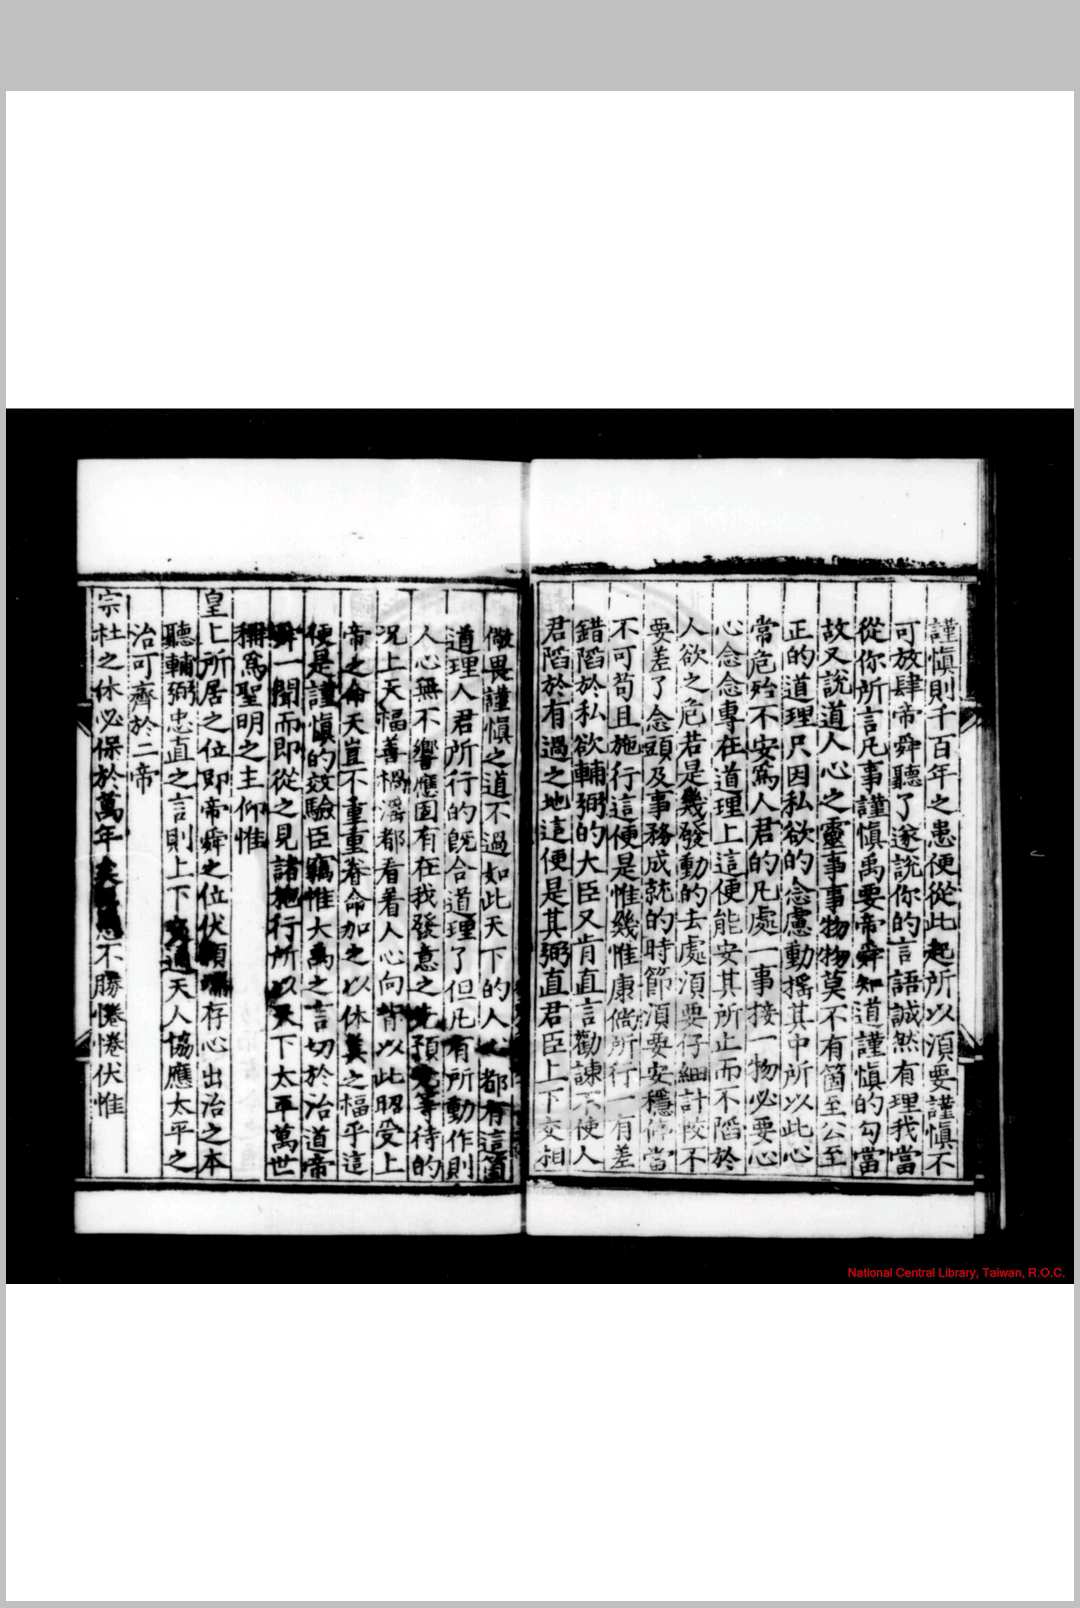 謹愼則千百年之患便從此起所以湏要謹愼不
可放肆帝舜聽了遂說你的言語誠然有理我當
從你所言凡事謹愼禹要帝舜知道謹愼的勾當
故又說道人心之靈事事物物莫不有箇至公至
正的道理只因私欲的念慮動搖其中所以此心
當危殆不安爲人君的凡處一事接一物必要心
心念念專在道理上這便能安其所止而不陷於
人欲之危若是幾發動的去處湏要仔細計較不
要差了念頭及事務成就的時節湏要安穩停當
不可苟且施行這便是惟幾惟康倘所行一有差
錯陷於私欲輔弼的大臣又肯直言勸諫不使人
君陷於有過之地這便是其弼直君臣上下交相
儆畏謹愼之道不過如此天下的人心都有這箇
道理人君所行的旣合道理了但凡有所動作則
人心無不響應固有在我發意之先預先等待的
況上天福善禍淫都看着人心向背以此昭受上
帝之命天豈不重重眷命加之以休美之福乎這
便是謹愼的效驗臣竊惟大禹之言切於治道帝
舜一聞而即從之見諸施行所以天下太平萬世
稱爲聖明之主仰惟
皇上所居之位即帝舜之位伏願存心出治之本
聽輔弼忠直之言則上下交通天人協應太平之
治可齊於二帝
宗社之休必保於萬年矣不勝惓惓伏惟
National Central Library, Taiwan, R.O.C.